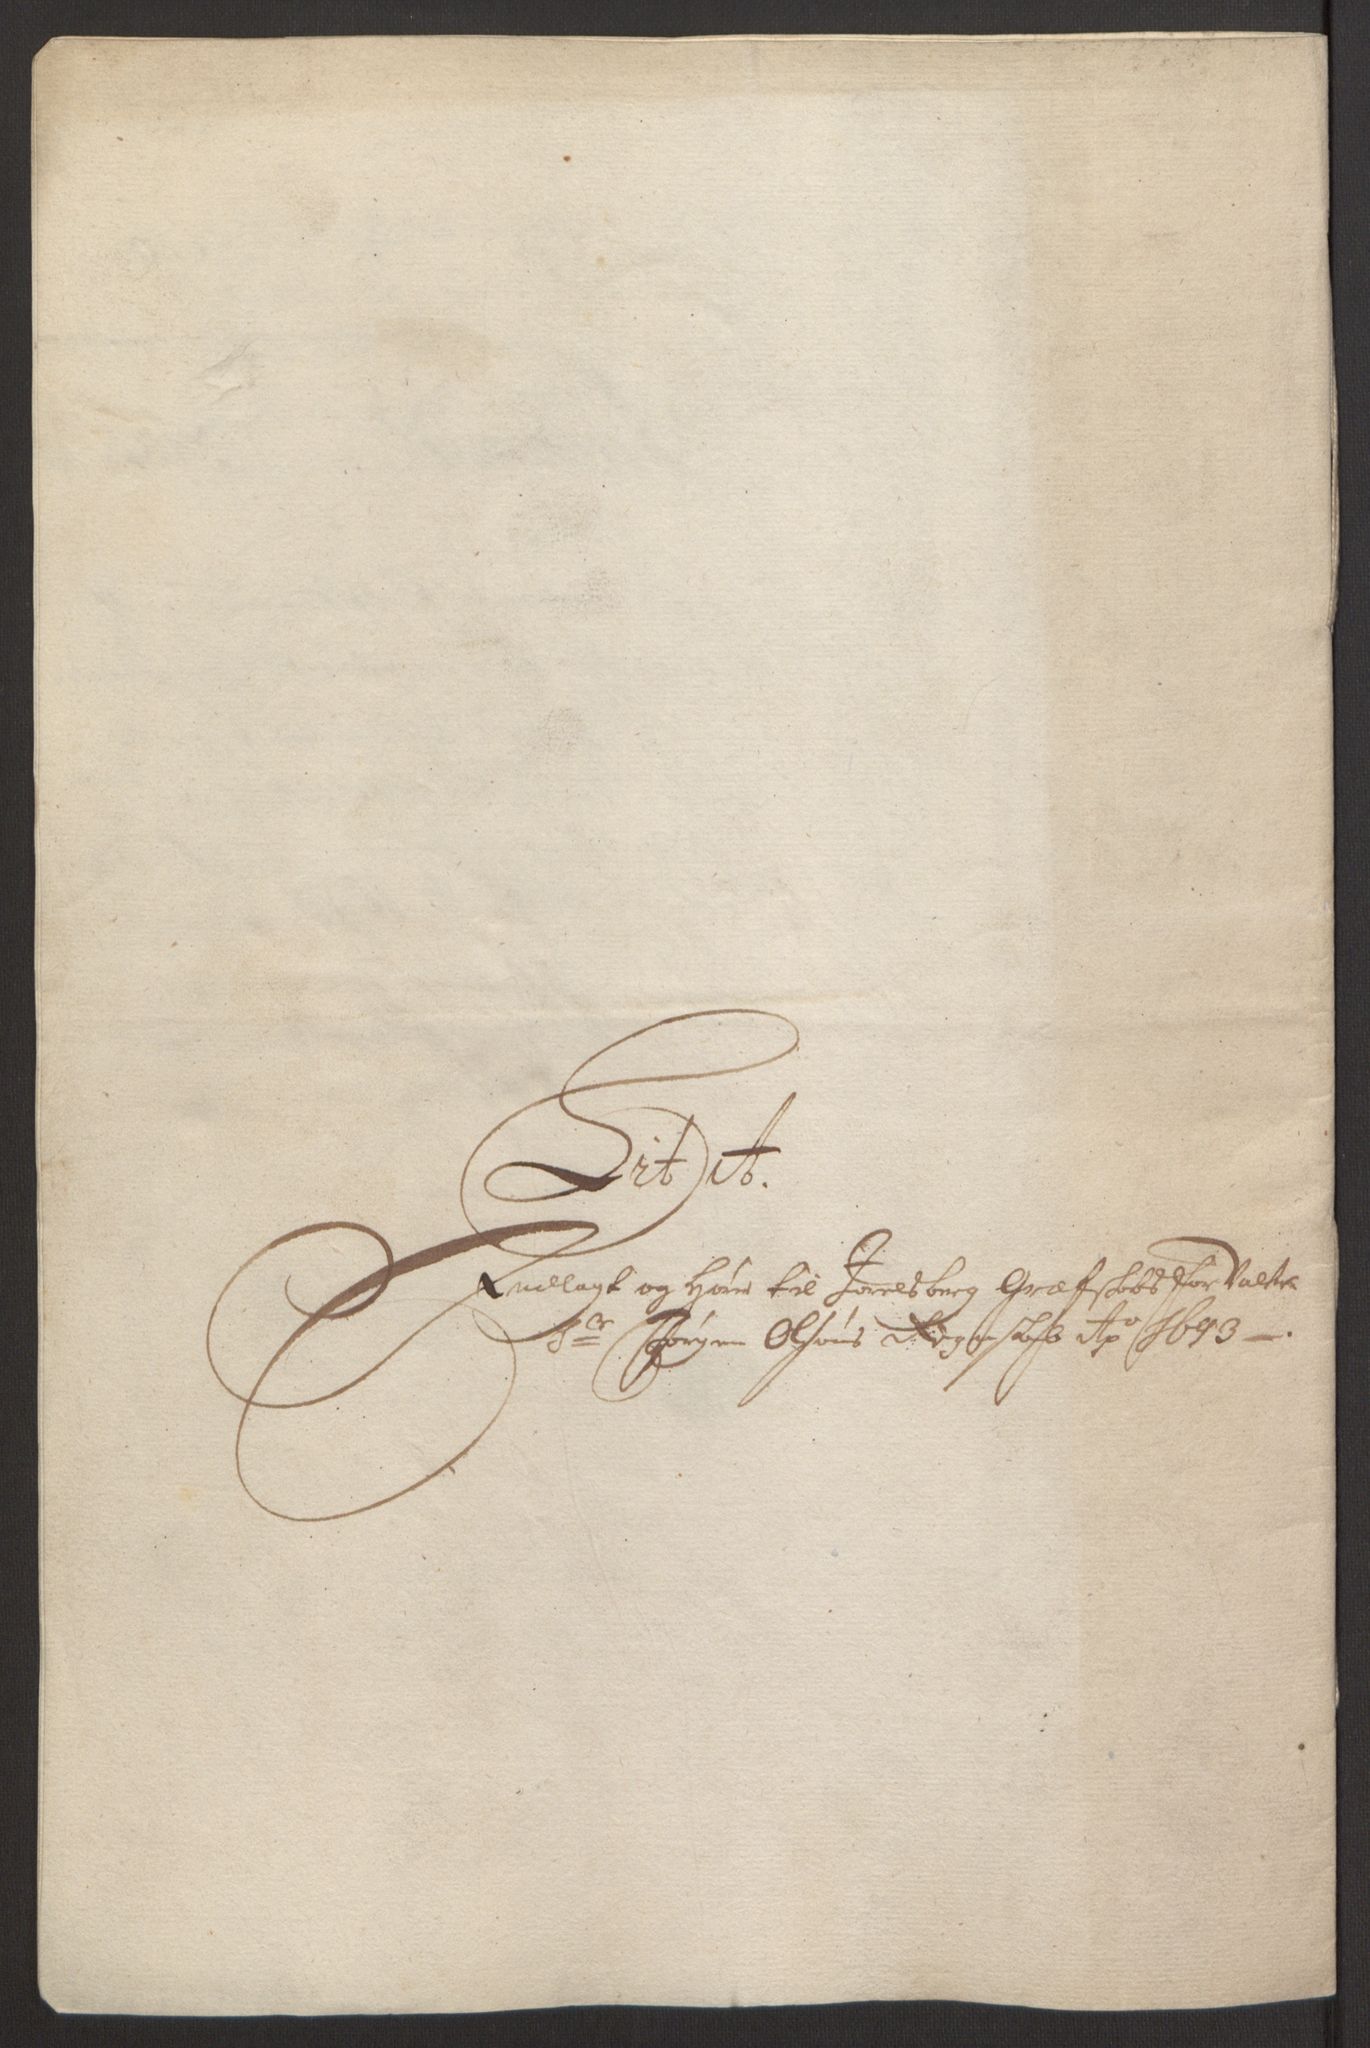 Lit A.
Indlagt og Hører til Jarlsberg Grefskabs Forvalter
Sr Jørgen Olsøns Regenskab Ao 1693 —.